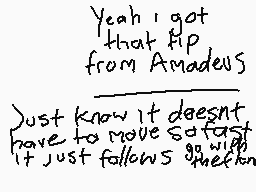 Yeah i got
that tip
from Amadeus
Just know it doesnt
have to move so fast
it just follows go with
the